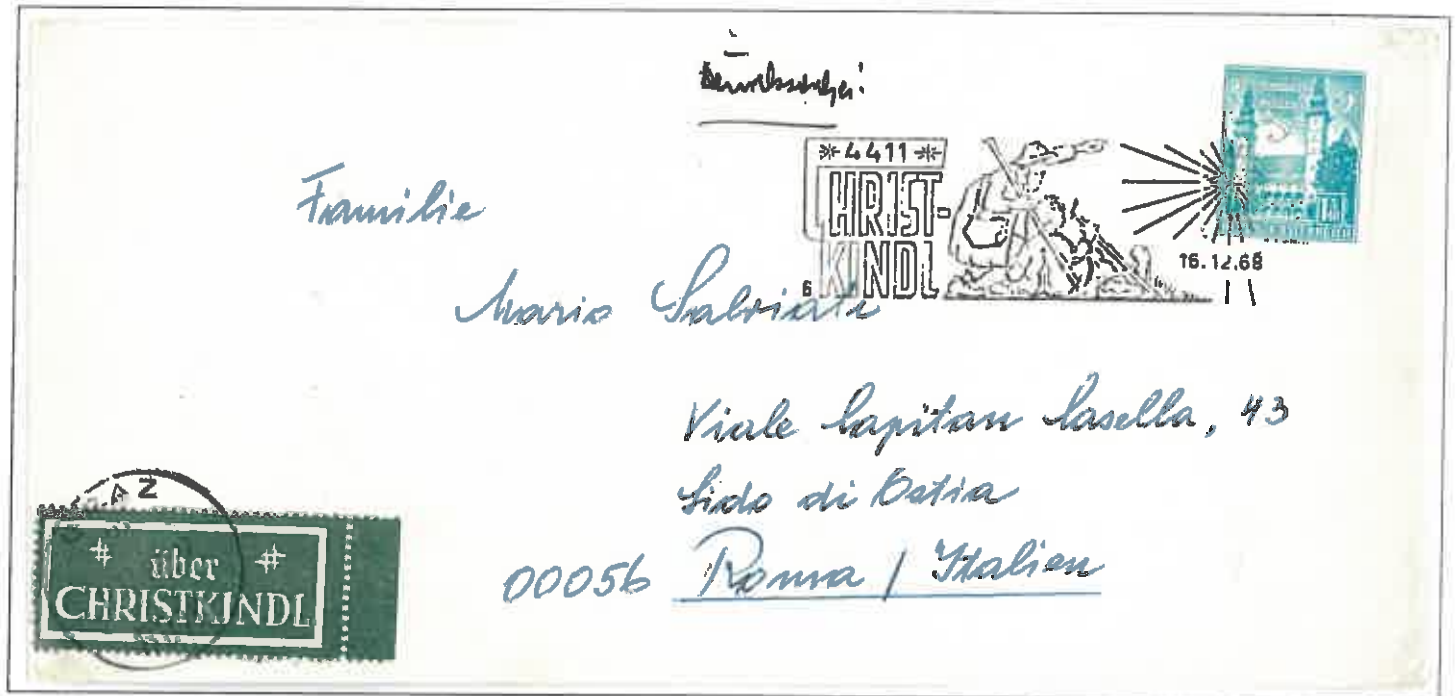 Drucksache!
* 4411 *
HRIST-
KINDL
6
16.12.68
Familie
Mario
Viale Capitan Casella, 43
Lido di Ostia
00056 Roma / Italien
AZ
über
CHRISTKINDL